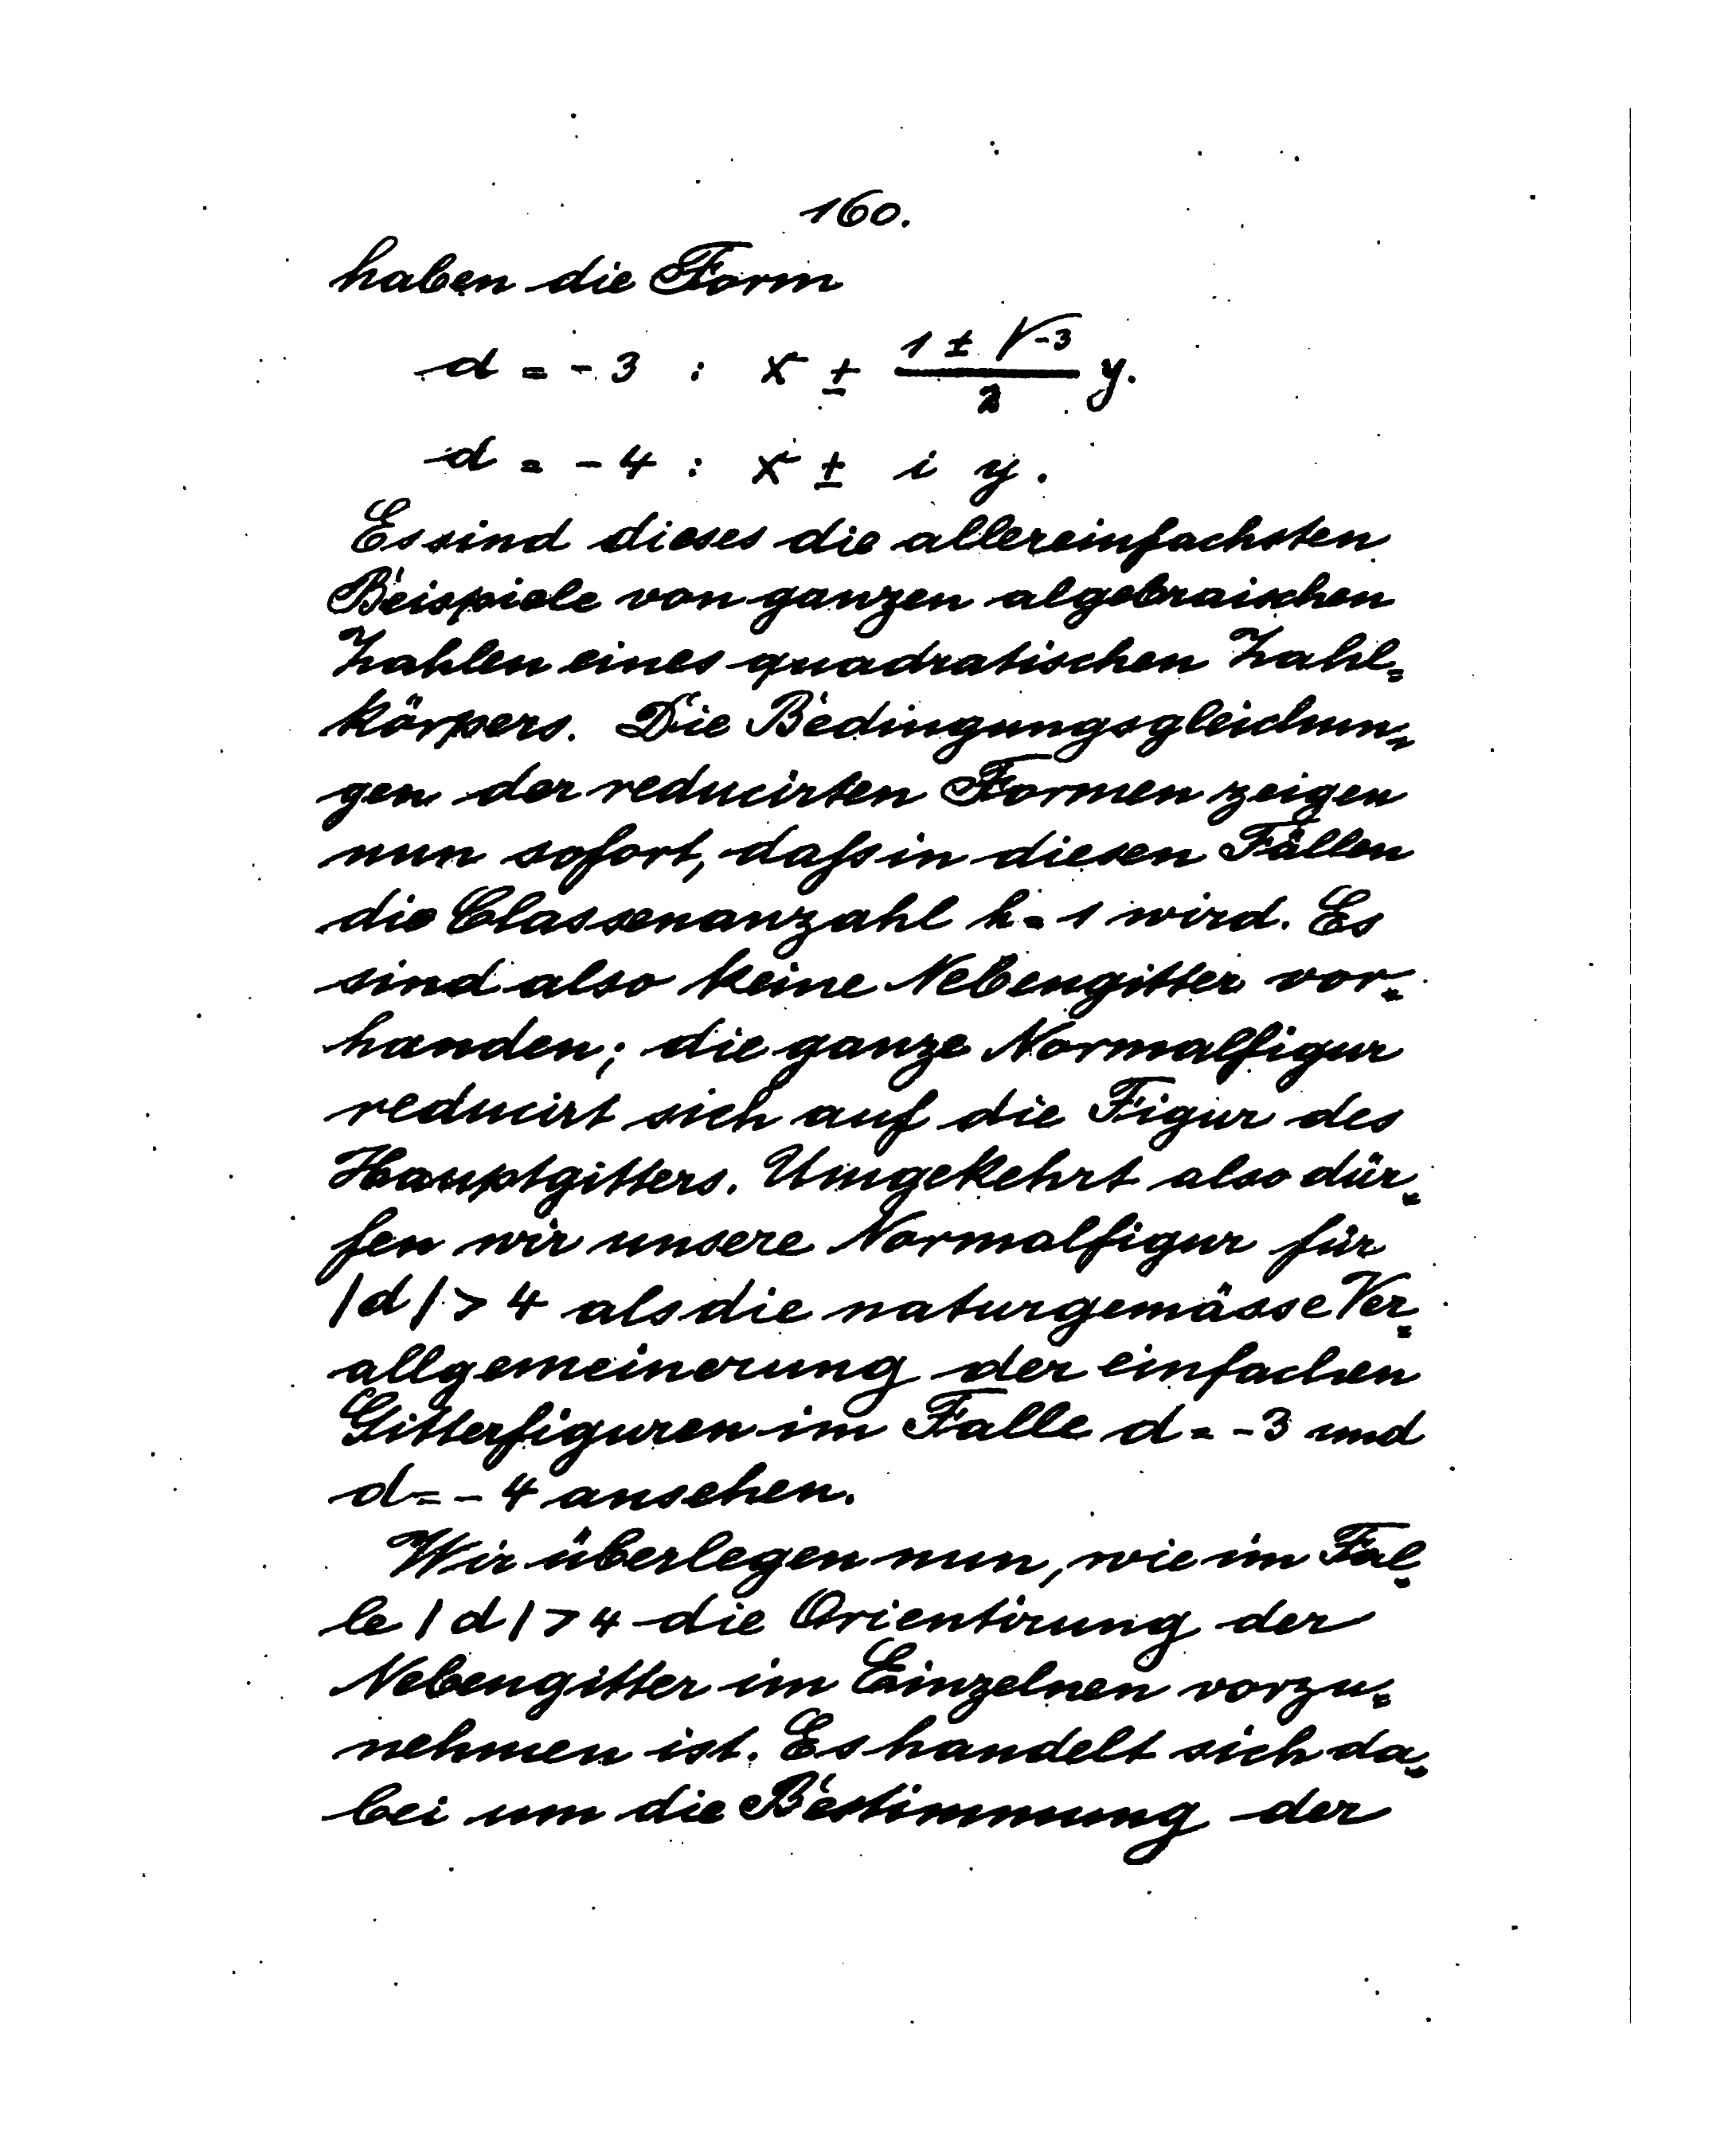 160.
haben die Form
d = -3 : x ± (1 ± √-3)/2 y.
d = -4 : x ± i y.
Es sind dieses die allereinfachsten
Beispiele von ganzen algebraischen
Zahlen eines quadratischen Zahl=
körpers. Die Bedingungsgleichun=
gen der reducirten Formen zeigen
nun sofort, dafs in diesen Fällen
die Classenanzahl h = 1 wird. Es
sind also keine Nebengitter vor=
handen; die ganze Normalfigur
reducirt sich auf die Figur des
Hauptgitters. Umgekehrt also dür=
fen wir unsere Normalfigur für
|d| > 4 als die naturgemässe Ver=
allgemeinerung der einfachen
Gitterfiguren im Falle d = -3 und
d = -4 ansehen.
Wir überlegen nun, wie im Fal=
le |d| > 4 die Orientirung der
Nebengitter im Einzelnen vorzu=
nehmen ist. Es handelt sich da=
bei um die Bestimmung der